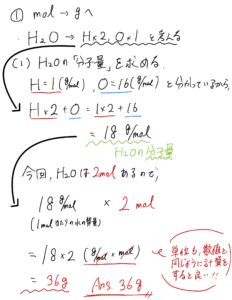 ① mol → g へ
・H₂O → H×2, O×1 と考える
(1) H₂Oの「分子量」を求める。
H=1(g/mol), O=16(g/mol) と分かっているから、
H×2+O = 1×2+16
= 18 g/mol
H₂Oの分子量
今回、H₂Oは2molあるので、
18 g/mol × 2 mol
(1molあたりの水の質量)
= 18×2 (g/mol × mol)
= 36g Ans. 36g
単位も、数値と
同じように計算を
すると良い!!